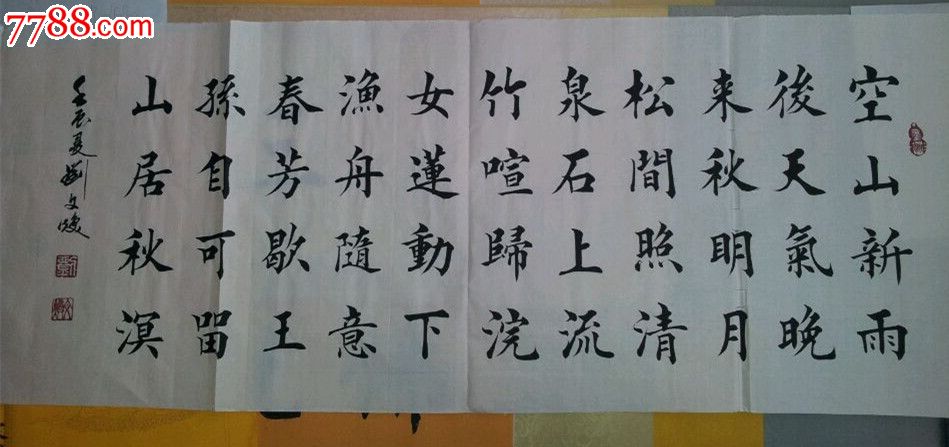 7788.com
空山新雨
後天氣晚
来秋明月
松間照清
泉石上流
竹喧歸浣
女蓮動下
漁舟隨意
春芳歇王
孫自可留
山居秋溟
壬辰夏劉文煥